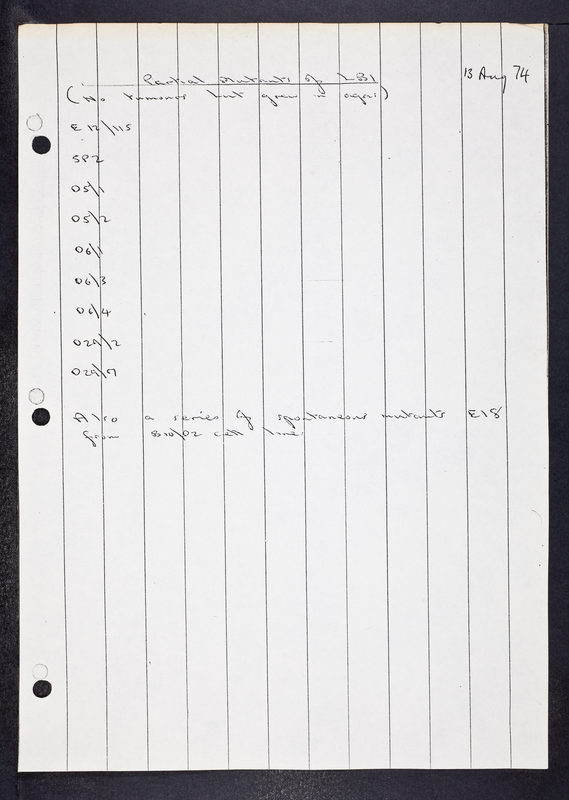 13 Aug 74
Partial Mutants of LB1
(No tumours but grew in agar)
E12/115
SP2
05/1
05/2
06/1
06/3
06/4
029/2
029/9
Also a series of spontaneous mutants E18
from B10/02 cell line